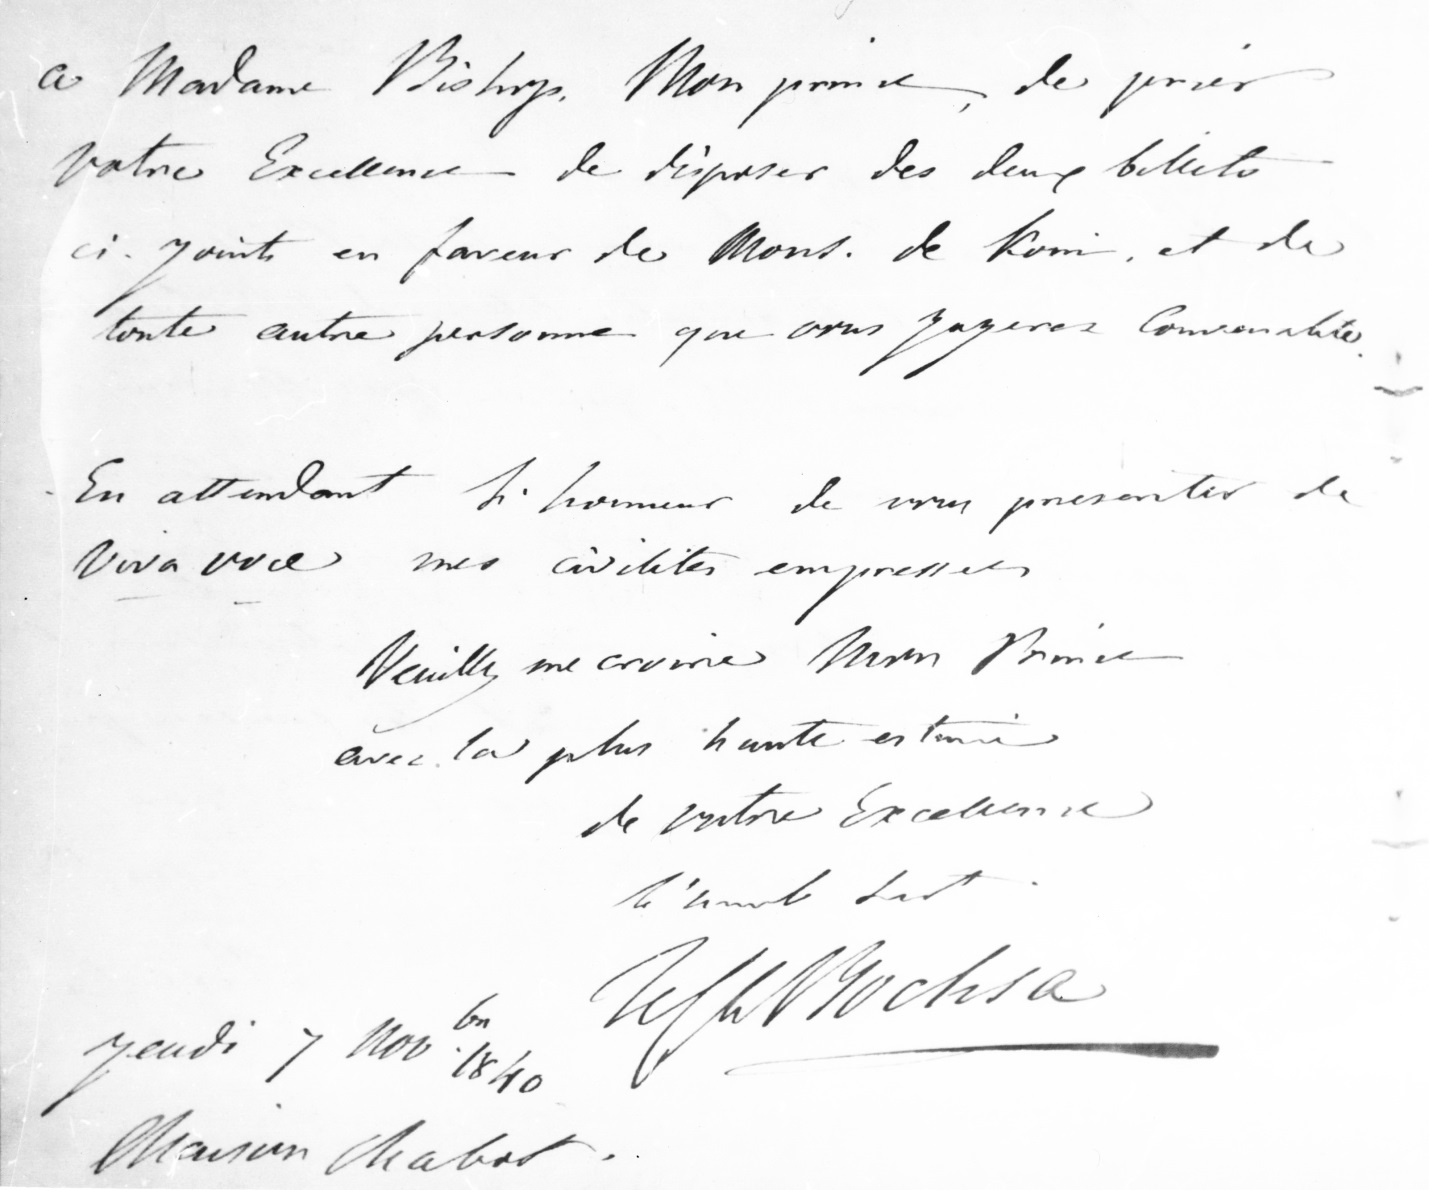 a Madame Bishop. Mon prince, de prier
votre Excellence de disposer des deux billets
ci-joints en faveur de Mons. de Koni, et de
toute autre personne que vous jugerez convenable.
En attendant l'honneur de vous presenter de
viva voce mes civilités empressées
Veuillez me croire Mon Prince
avec la plus haute estime
de votre Excellence
Bochsa
jeudi 7 Nov.bre 1840
Maison Chabot.